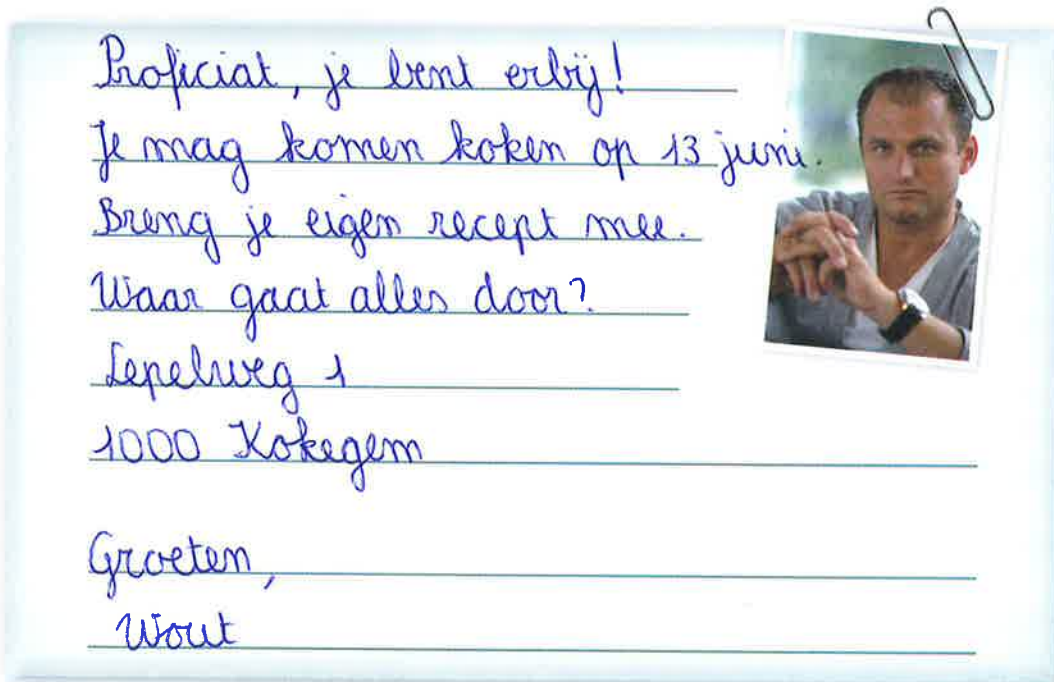 Proficiat, je bent erbij!
Je mag komen koken op 13 juni.
Breng je eigen recept mee.
Waar gaat alles door?
Lepelweg 1
1000 Kokegem
Groeten,
Wout